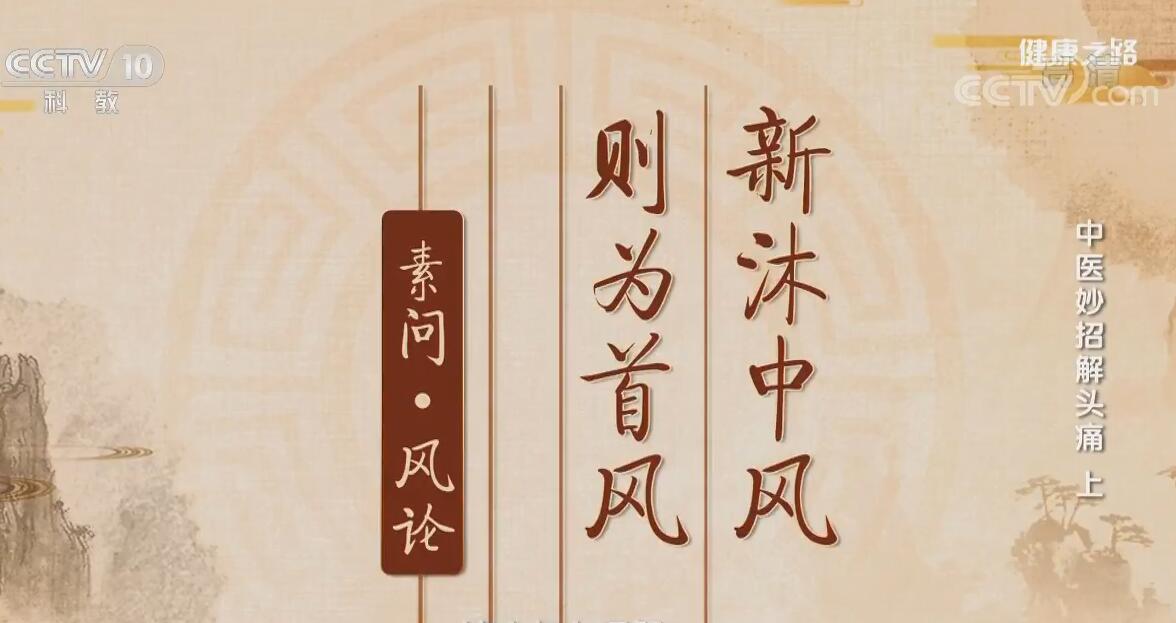 CCTV 10
科教
健康之路
高清
CCTV.com
新沐中风
则为首风
素问·风论
中医妙招解头痛 上